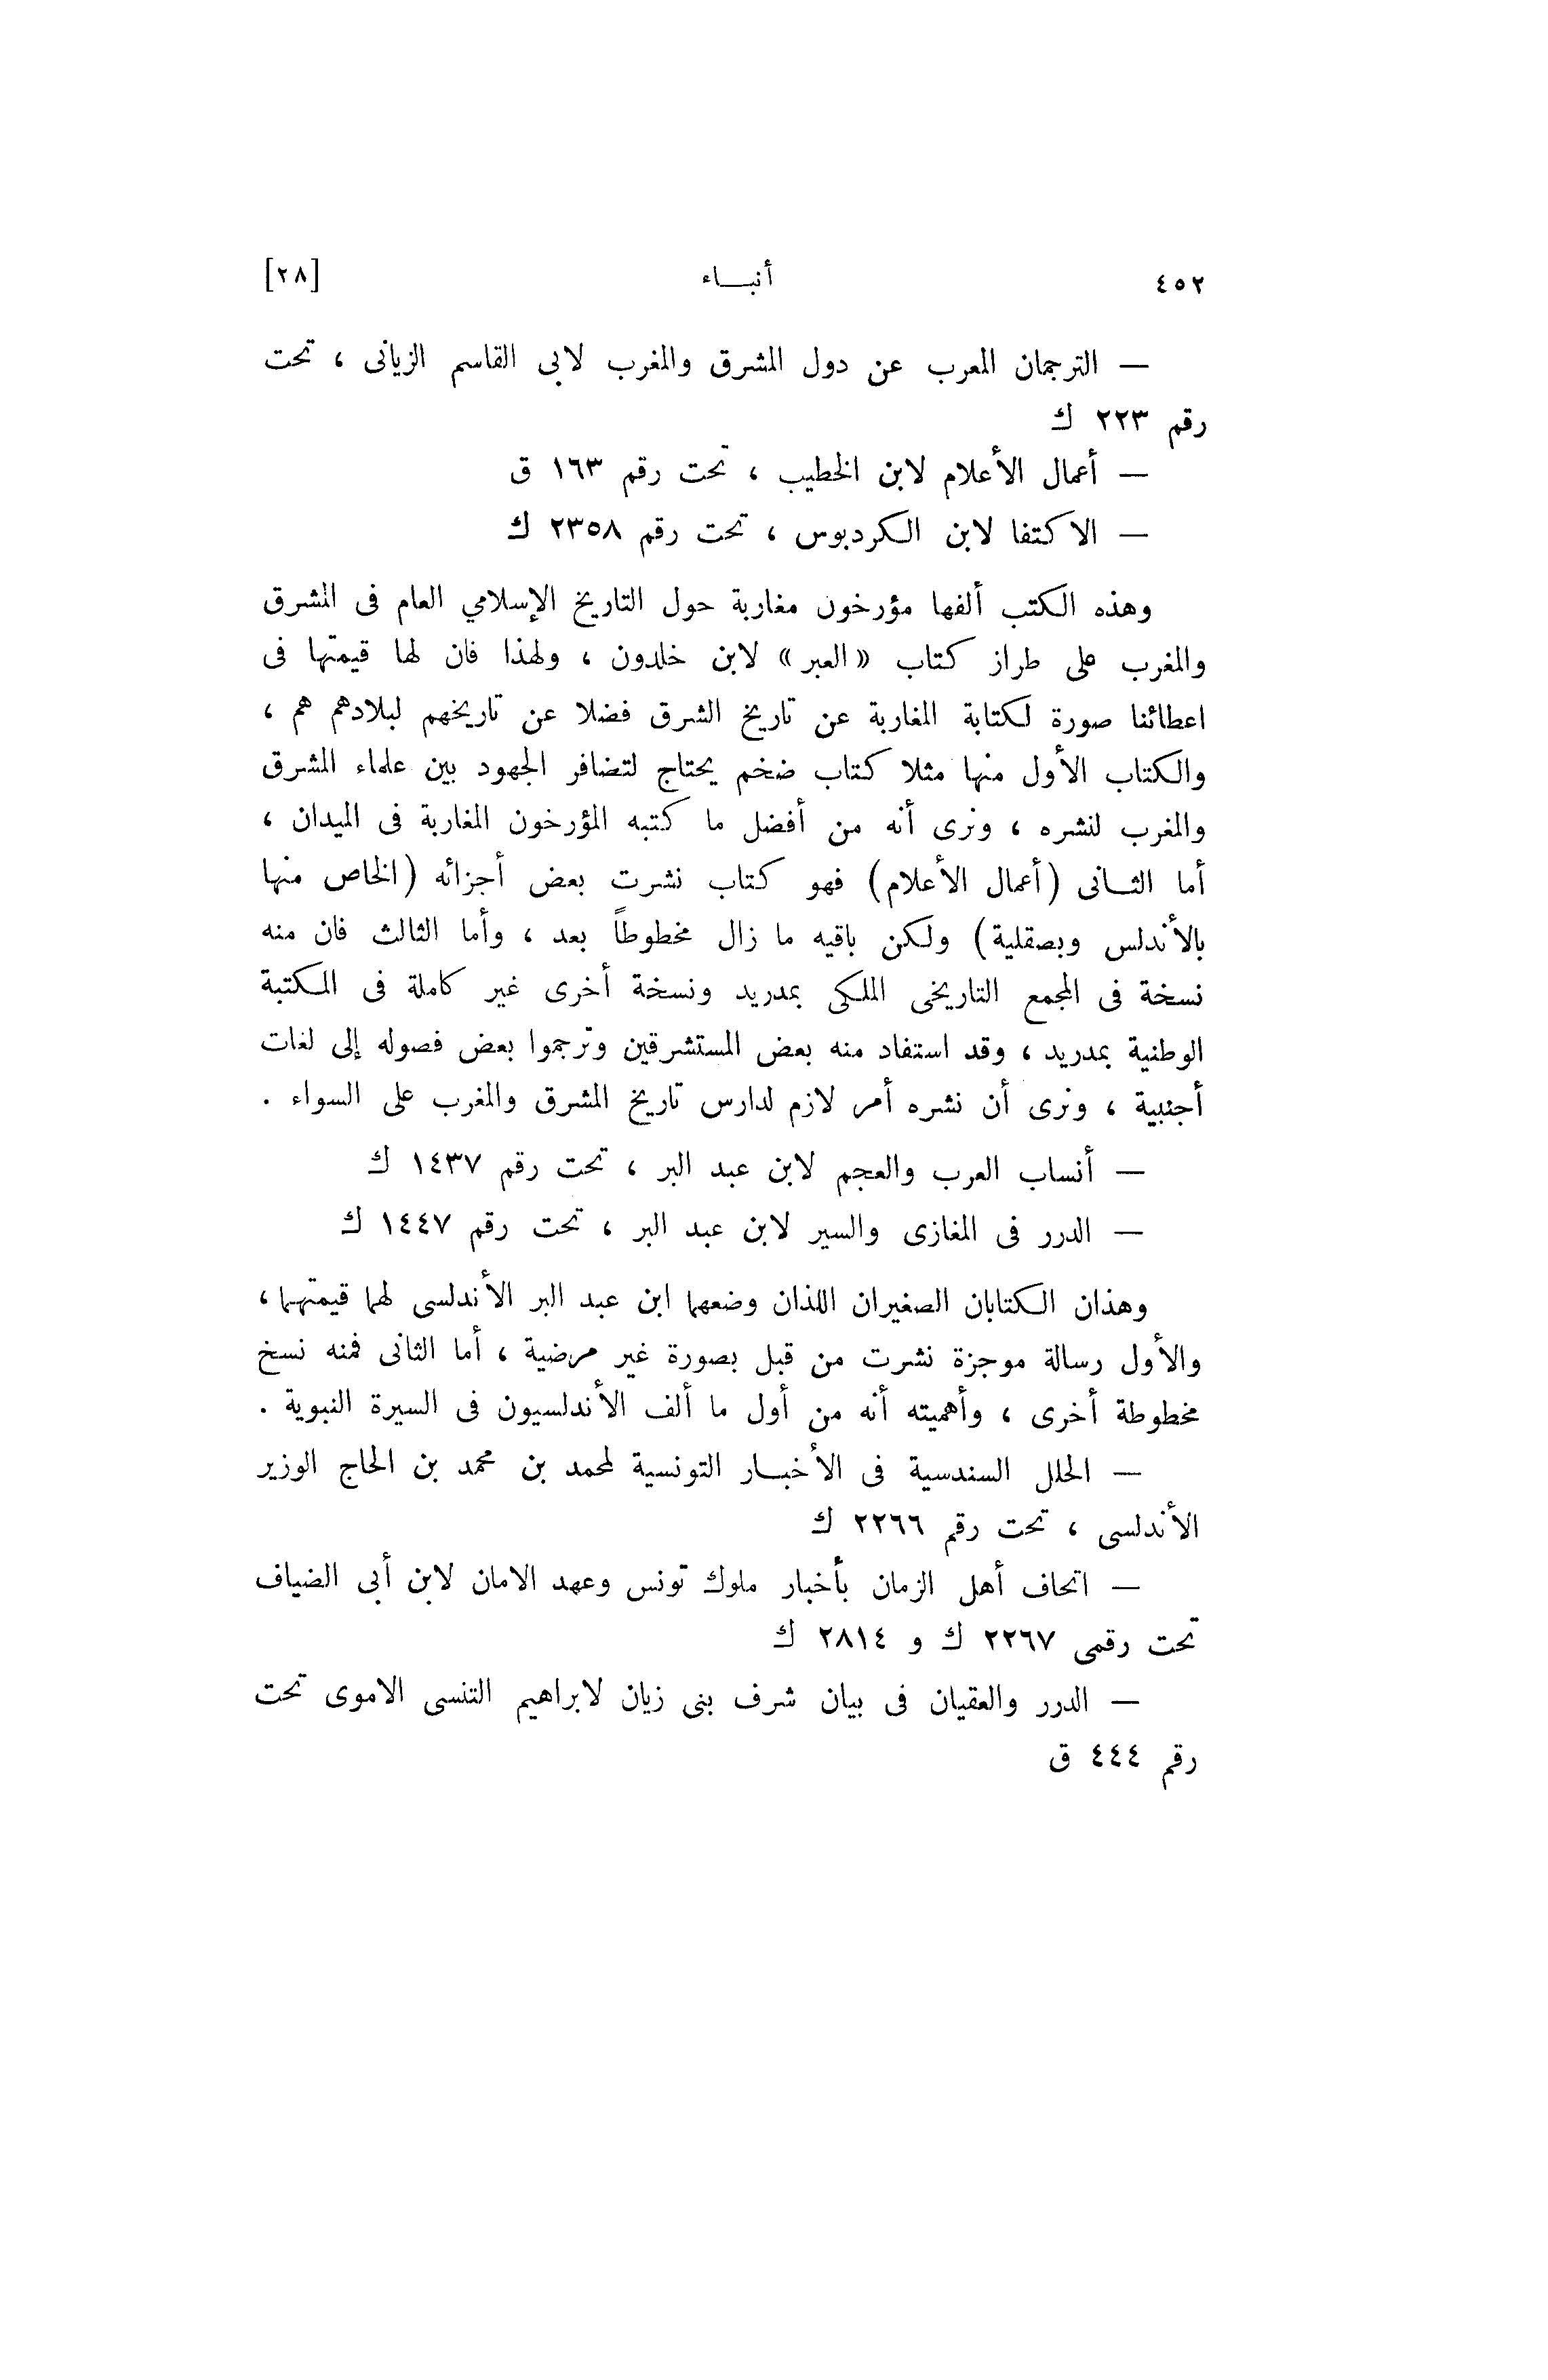 ٤٥٢ أنبــاء [٢٨]
— الترجمان المعرب عن دول المشرق والمغرب لابى القاسم الزيانى ، تحت
رقم ٢٢٣ ك
— أعمال الأعلام لابن الخطيب ، تحت رقم ١٦٣ ق
— الاكتفا لابن الكردبوس ، تحت رقم ٢٣٥٨ ك
وهذه الكتب ألفها مؤرخون مغاربة حول التاريخ الإسلامي العام فى المشرق
والمغرب على طراز كتاب «العبر» لابن خلدون ، ولهذا فان لها قيمتها فى
اعطائنا صورة لكتابة المغاربة عن تاريخ الشرق فضلا عن تاريخهم لبلادهم هم ،
والكتاب الأول منها مثلا كتاب ضخم يحتاج لتضافر الجهود بين علماء المشرق
والمغرب لنشره ، ونرى أنه من أفضل ما كتبه المؤرخون المغاربة فى الميدان ،
أما الثــانى (أعمال الأعلام) فهو كتاب نشرت بعض أجزائه (الخاص منها
بالأندلس وبصقلية) ولكن باقيه ما زال مخطوطاً بعد ، وأما الثالث فان منه
نسخة فى المجمع التاريخى الملكى بمدريد ونسخة أخرى غير كاملة فى المكتبة
الوطنية بمدريد ، وقد استفاد منه بعض المستشرقين وترجموا بعض فصوله إلى لغات
أجنبية ، ونرى أن نشره أمر لازم لدارس تاريخ المشرق والمغرب على السواء .
— أنساب العرب والعجم لابن عبد البر ، تحت رقم ١٤٣٧ ك
— الدرر فى المغازى والسير لابن عبد البر ، تحت رقم ١٤٤٧ ك
وهذان الكتابان الصغيران اللذان وضعهما ابن عبد البر الأندلسى لهما قيمتهــا ،
والأول رسالة موجزة نشرت من قبل بصورة غير مرضية ، أما الثانى فمنه نسخ
مخطوطة أخرى ، وأهميته أنه من أول ما ألف الأندلسيون فى السيرة النبوية .
— الحلل السندسية فى الأخبــار التونسية لمحمد بن محمد بن الحاج الوزير
الأندلسى ، تحت رقم ٢٢٦٦ ك
— اتحاف أهل الزمان بأخبار ملوك تونس وعهد الامان لابن أبى الضياف
تحت رقمى ٢٢٦٧ ك و ٢٨١٤ ك
— الدرر والعقيان فى بيان شرف بنى زيان لابراهيم التنسى الاموى تحت
رقم ٤٤٤ ق